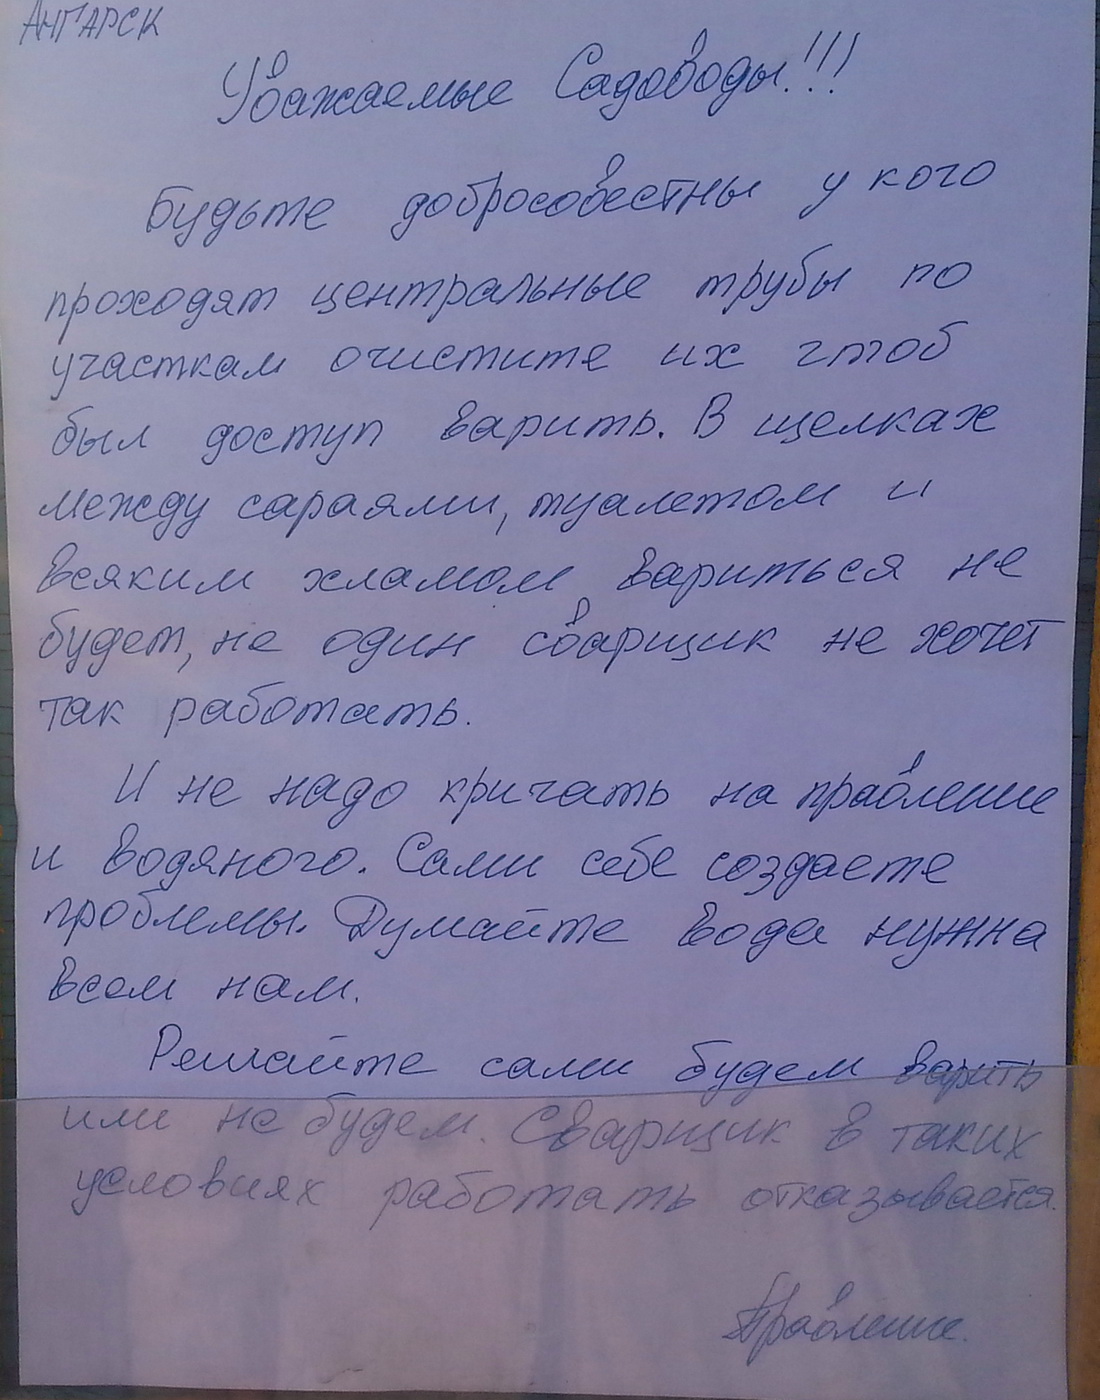 Ангарск
Уважаемые Садоводы!!!
Будьте добросовестны у кого
проходят центральные трубы по
участкам очистите их чтоб
был доступ варить. В щелках
между сараями, туалетом и
всяким хламом вариться не
будет, не один сварщик не хочет
так работать.
И не надо кричать на правление
и водяного. Сами себе создаете
проблемы. Думайте вода нужна
всем нам.
Решайте сами будем варить
или не будем. Сварщик в таких
условиях работать отказывается.
Правление.